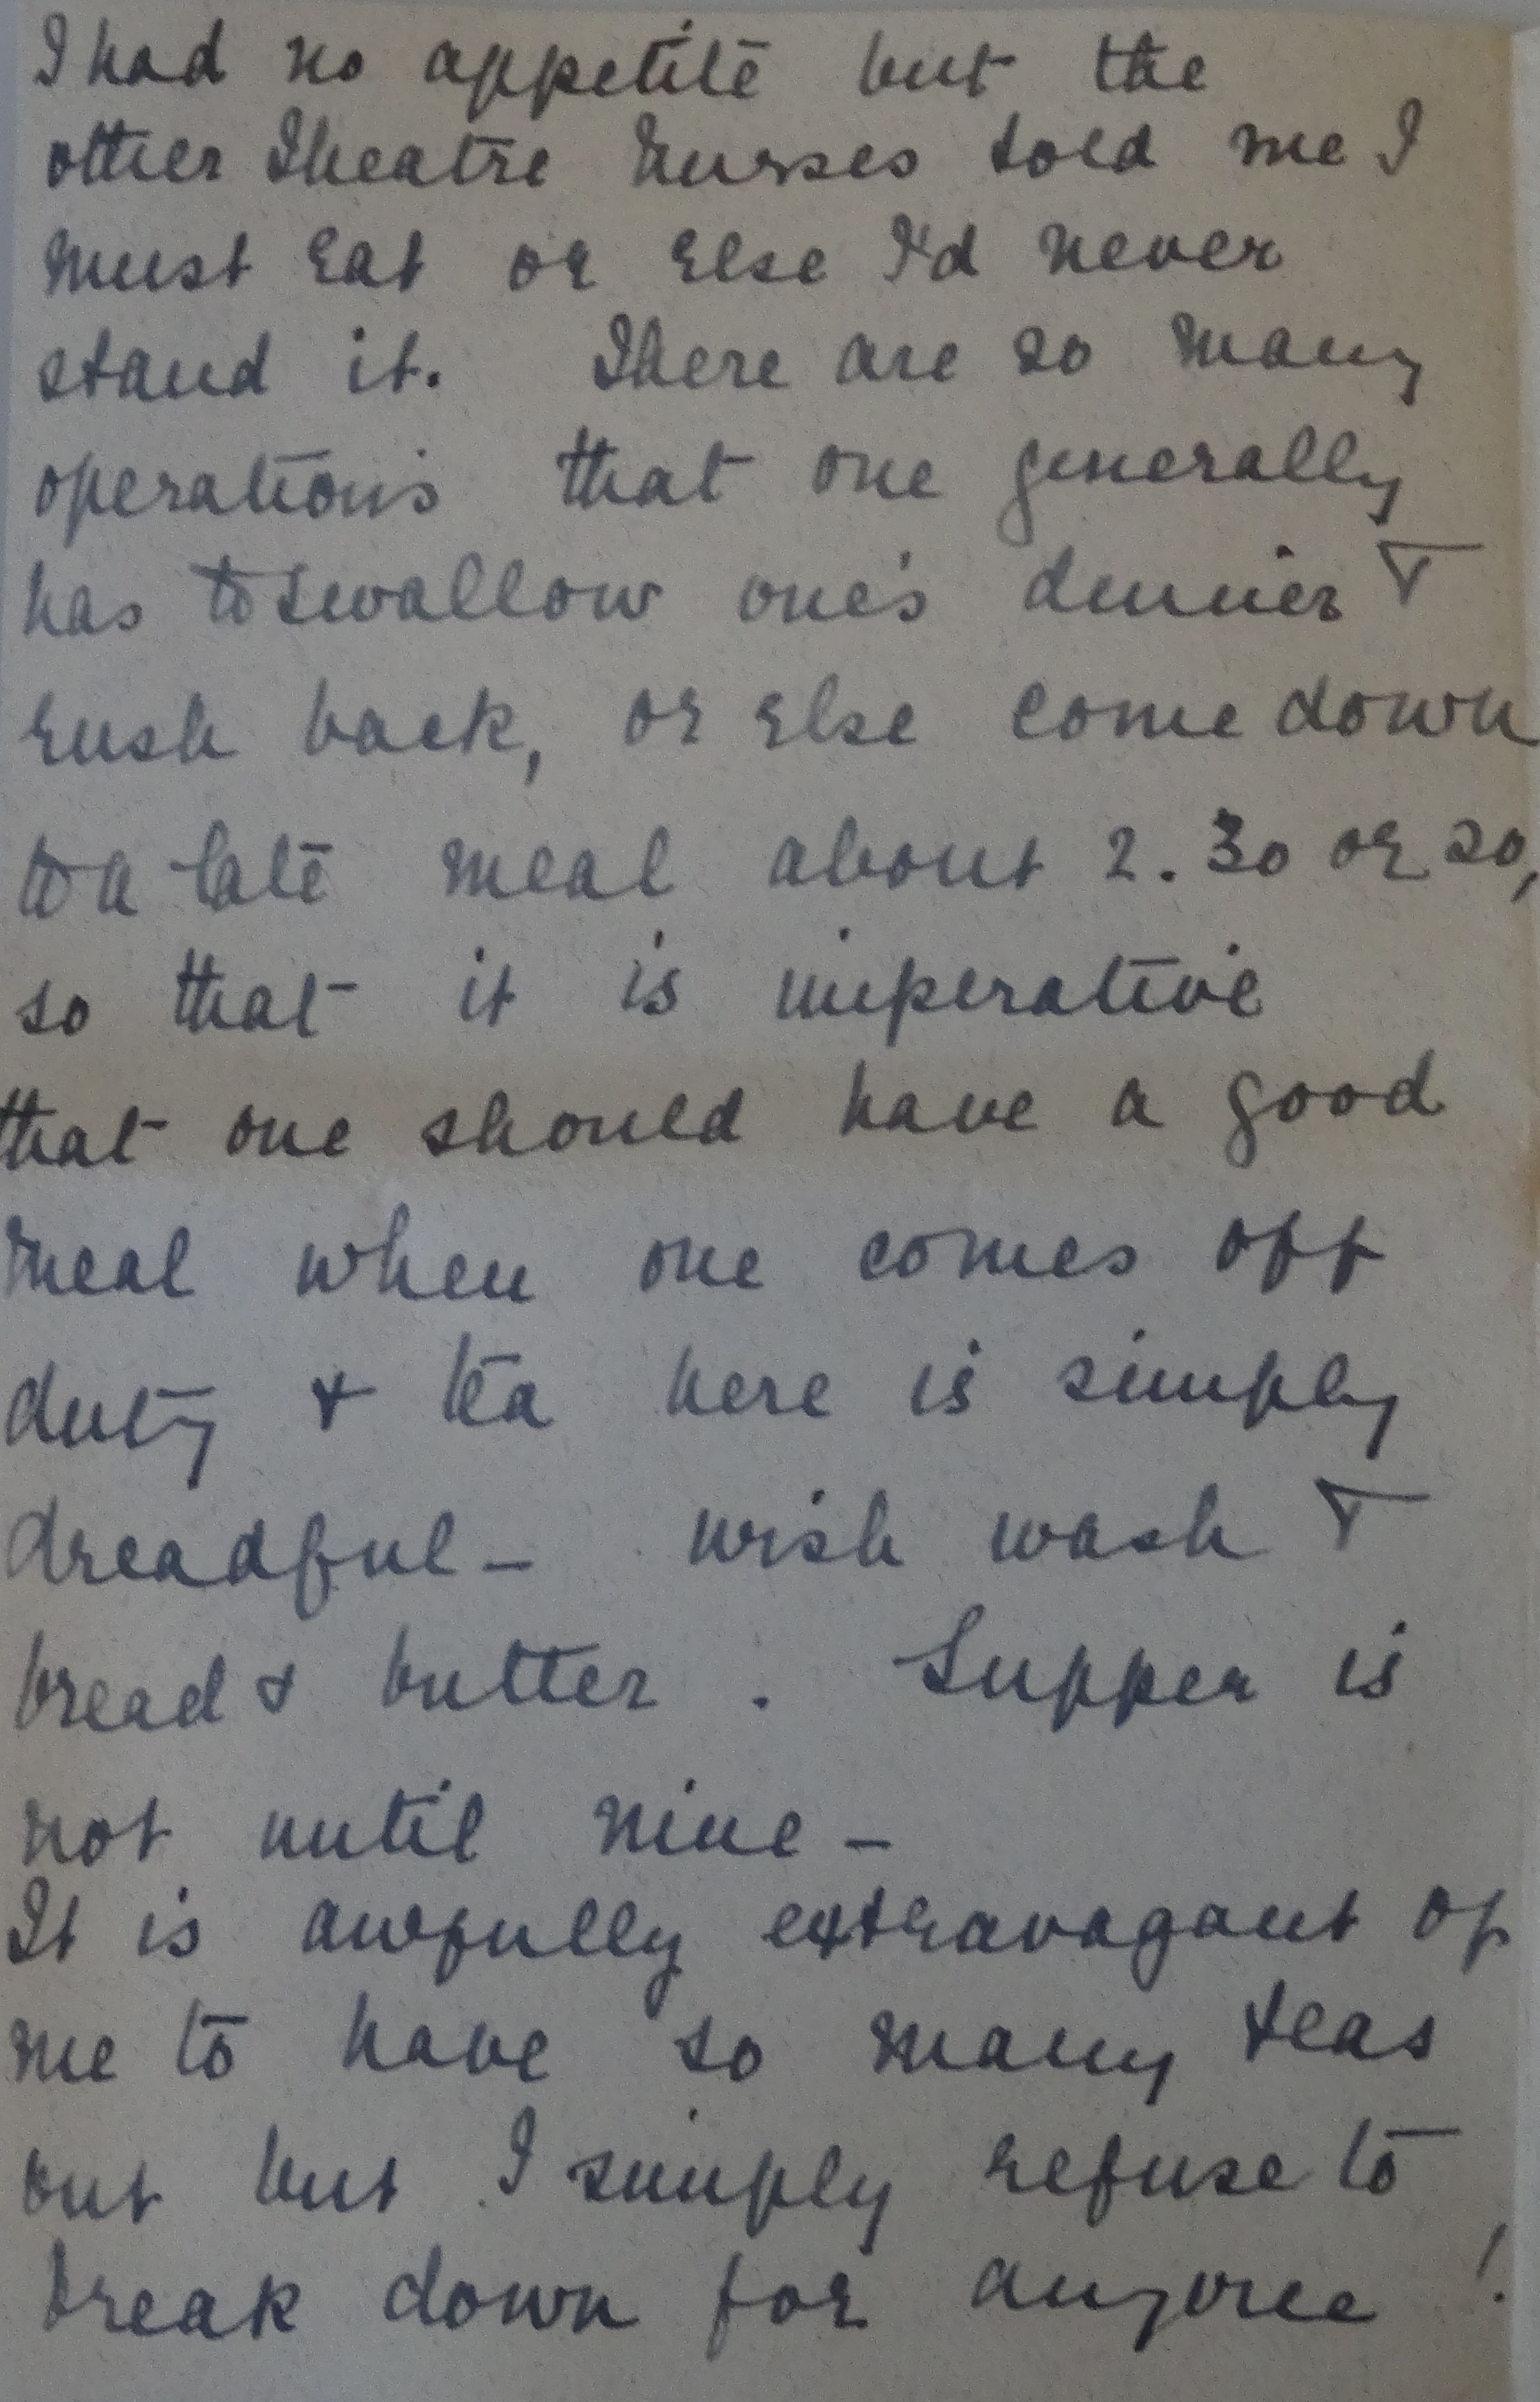 I had no appetite but the
other Theatre Nurses told me I
must eat or else I'd never
stand it. There are so many
operations that one generally
has to swallow one's dinner &
rush back, or else come down
to a late meal about 2.30 or so,
so that it is imperative
that one should have a good
meal when one comes off
duty & tea here is simply
dreadful - wish wash &
bread & butter. Supper is
not until nine -
It is awfully extravagant of
me to have so many teas
out but I simply refuse to
break down for anyone!